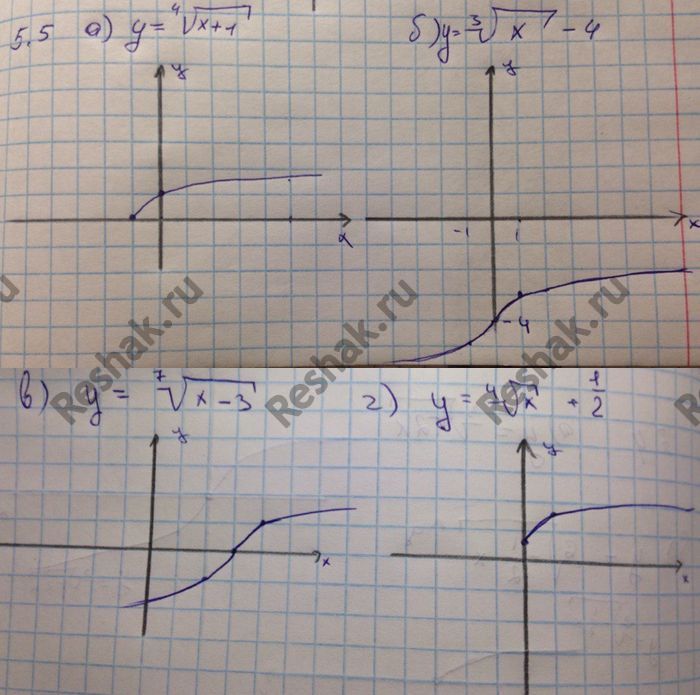 5.5 а) y = ⁴√x+1 б) y = ³√x - 4
y y
x -1 1 x
-4
Reshak.ru Reshak.ru Reshak.ru
в) y = ⁷√x-3 г) y = ⁴√x + 1/2
y y
x x